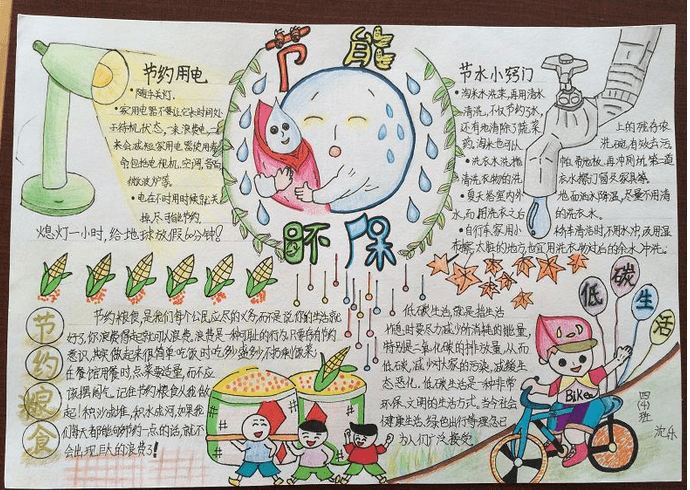 节能
环保
节约用电
•随手关灯.
•家用电器不要让它长时间处
于待机状态,一来浪费电,二
来会减短家用电器使用寿
命包括电视机,空调,各
微波炉等.
•电在不用时随时
熄灯一小时,给地球放假60分钟!
节水小窍门
•淘米水洗菜,再用清水
清洗,不仅节约了水,
还有效清除了蔬菜
上的残存农
药,淘米水也可以
洗碗,有效去污
•洗衣水洗拖
帕、再拖地板,再冲厕坑.第二道
清洗衣物的洗
•夏天给室内外
地面洒水降温,尽量不用清
水,而用洗衣之后
的洗衣水.
•自行车、家用小
轿车清洁时,不用水冲,改用湿
布擦,太脏的地方也宜用洗衣物过后的余水冲洗.
节约粮食
节约粮食,是我们每个公民应尽的义务,而不是说你的生活
好了,你浪费得起就可以浪费.浪费是一种可耻的行为.只要存有节约
意识,其实做起来很简单:吃饭时吃多少盛多少不扔剩饭菜;
在餐馆用餐时点菜要适量,而不应
该摆阔气,记住节约粮食从我做
起!积沙成堆,积水成河,如果我
们每天都能够节约一点的话,就不
会出现巨大的浪费了!
低碳生活
低碳生活,就是指生活
作息时要尽力减少所消耗的能量,
特别是二氧化碳的排放量,从而
低碳,减少对大气的污染,减缓生
态恶化,低碳生活是一种非常
环保、文明的生活方式,当今社会
健康生活,绿色出行等理念已
为人们广泛接受
Bike
四(4)班
沈乐